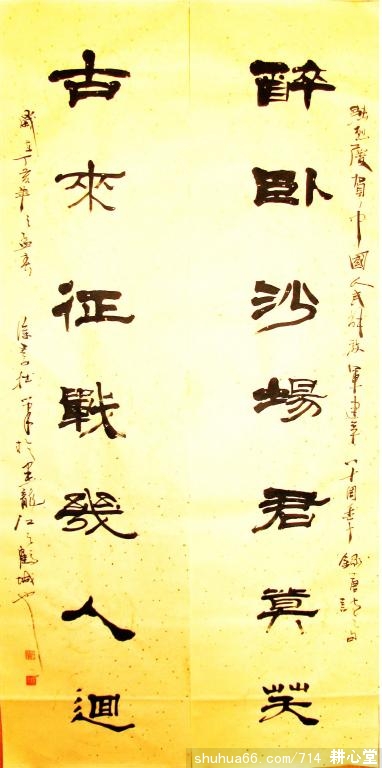 热烈庆贺中國人民解放軍建军八十周年 錄唐诗句
醉卧沙場君莫笑
古來征戰幾人迴
歲在丁亥年之孟春 徐書社筆於黑龍江之鶴城也
shuhua66.com/714 耕心堂